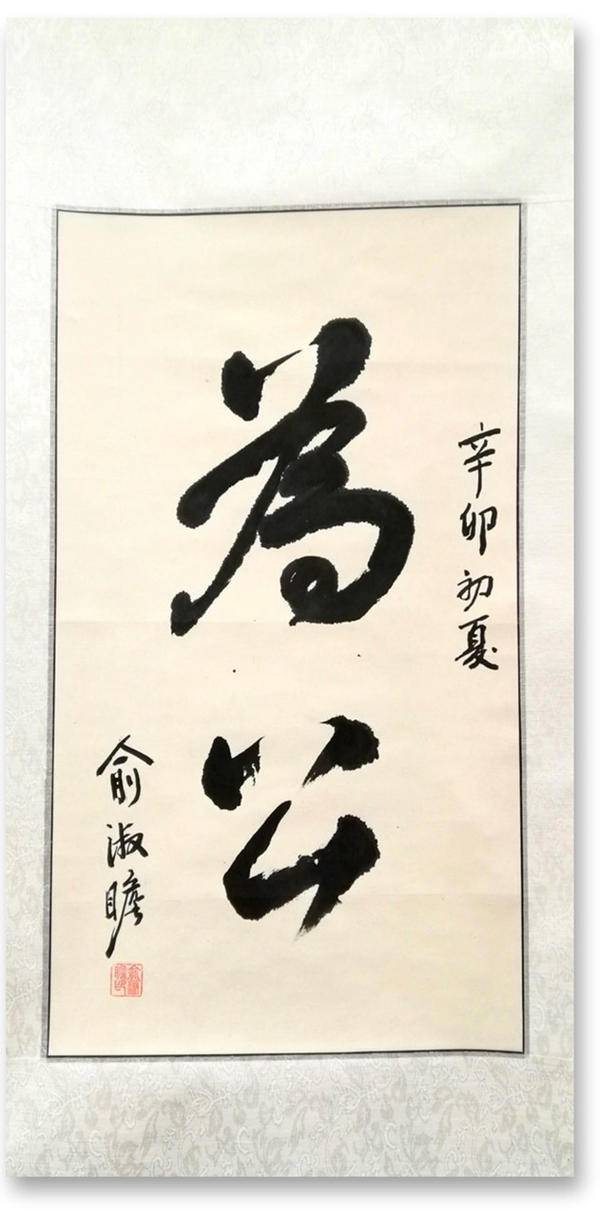 辛卯初夏
為公
俞淑瞻